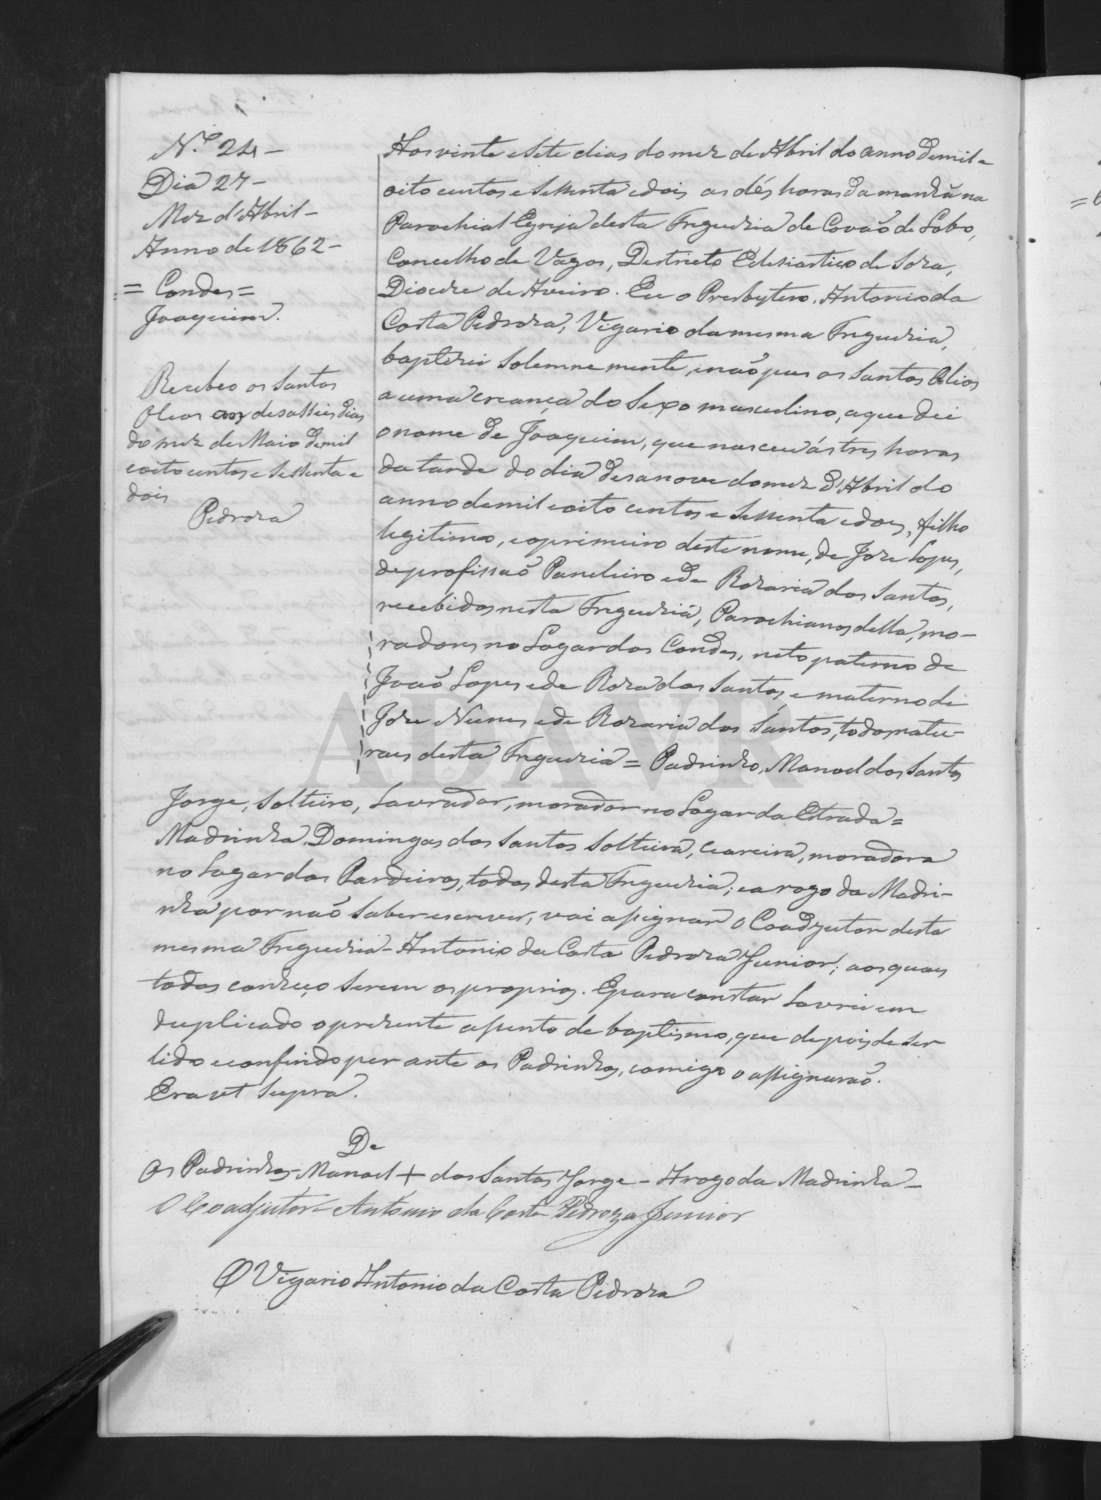 N.º 24 -
Dia 27 -
Mez d'Abril -
Anno de 1862 -
= Condes =
Joaquim.
Recebeo os Santos
Oleos aos desasseis dias
do mez de Maio de mil
e oito centos e Sessenta e
dois
Pedroza
Aos vinte e Sete dias do mez de Abril do anno de mil e
oito centos e Sessenta e dois as dés horas da manhã na
Parochial Egreja desta Freguezia de Covão de Lobo,
Concelho de Vagos, Destricto Eclesiastico de Soza,
Dioceze de Aveiro. Eu o Presbytero, Antonio da
Costa Pedroza, Vigario da mesma Freguezia,
baptizei Solemnemente, e não pus os Santos Olios
a uma creança do Sexo masculino, a que dei
o nome de Joaquim, que nasceu ás tres horas
da tarde do dia desanove do mez d'Abril do
anno de mil e oito centos e Sessenta e dois, filho
legitimo, e o primeiro deste nome, de Joze Lopes,
de profissaõ Paneleiro e de Rozaria dos Santos,
recebidos nesta Freguezia, Parochianos della, mo-
radores no Logar dos Condes, neto paterno de
Joaõ Lopes e de Roza dos Santos, e materno de
Joze Nunes e de Rozaria dos Santos, todos natu-
raes desta Freguezia = Padrinho, Manoel dos Santos
Jorge, Solteiro, Lavrador, morador no Logar da Estrada =
Madrinha Domingas dos Santos Solteira, Ceareira, moradora
no Logar dos Pardeiros, todos desta Freguezia; e a rogo da Madri-
nha por naõ Saber escrever, vai assignar o Coadjutor desta
mesma Freguezia - Antonio da Costa Pedroza Junior; aos quaes
todos conheço Serem os proprios. E para constar Lavrei em
duplicado o prezente assento de baptismo, que depois de Ser
lido e conferido perante os Padrinhos, comigo o assignaraõ.
Era ut Supra.
De
Os Padrinhos - Manoel + dos Santos Jorge - A rogo da Madrinha -
O Coadjutor - António da Costa Pedroza Junior
O Vigario Antonio da Costa Pedroza
ADAVR